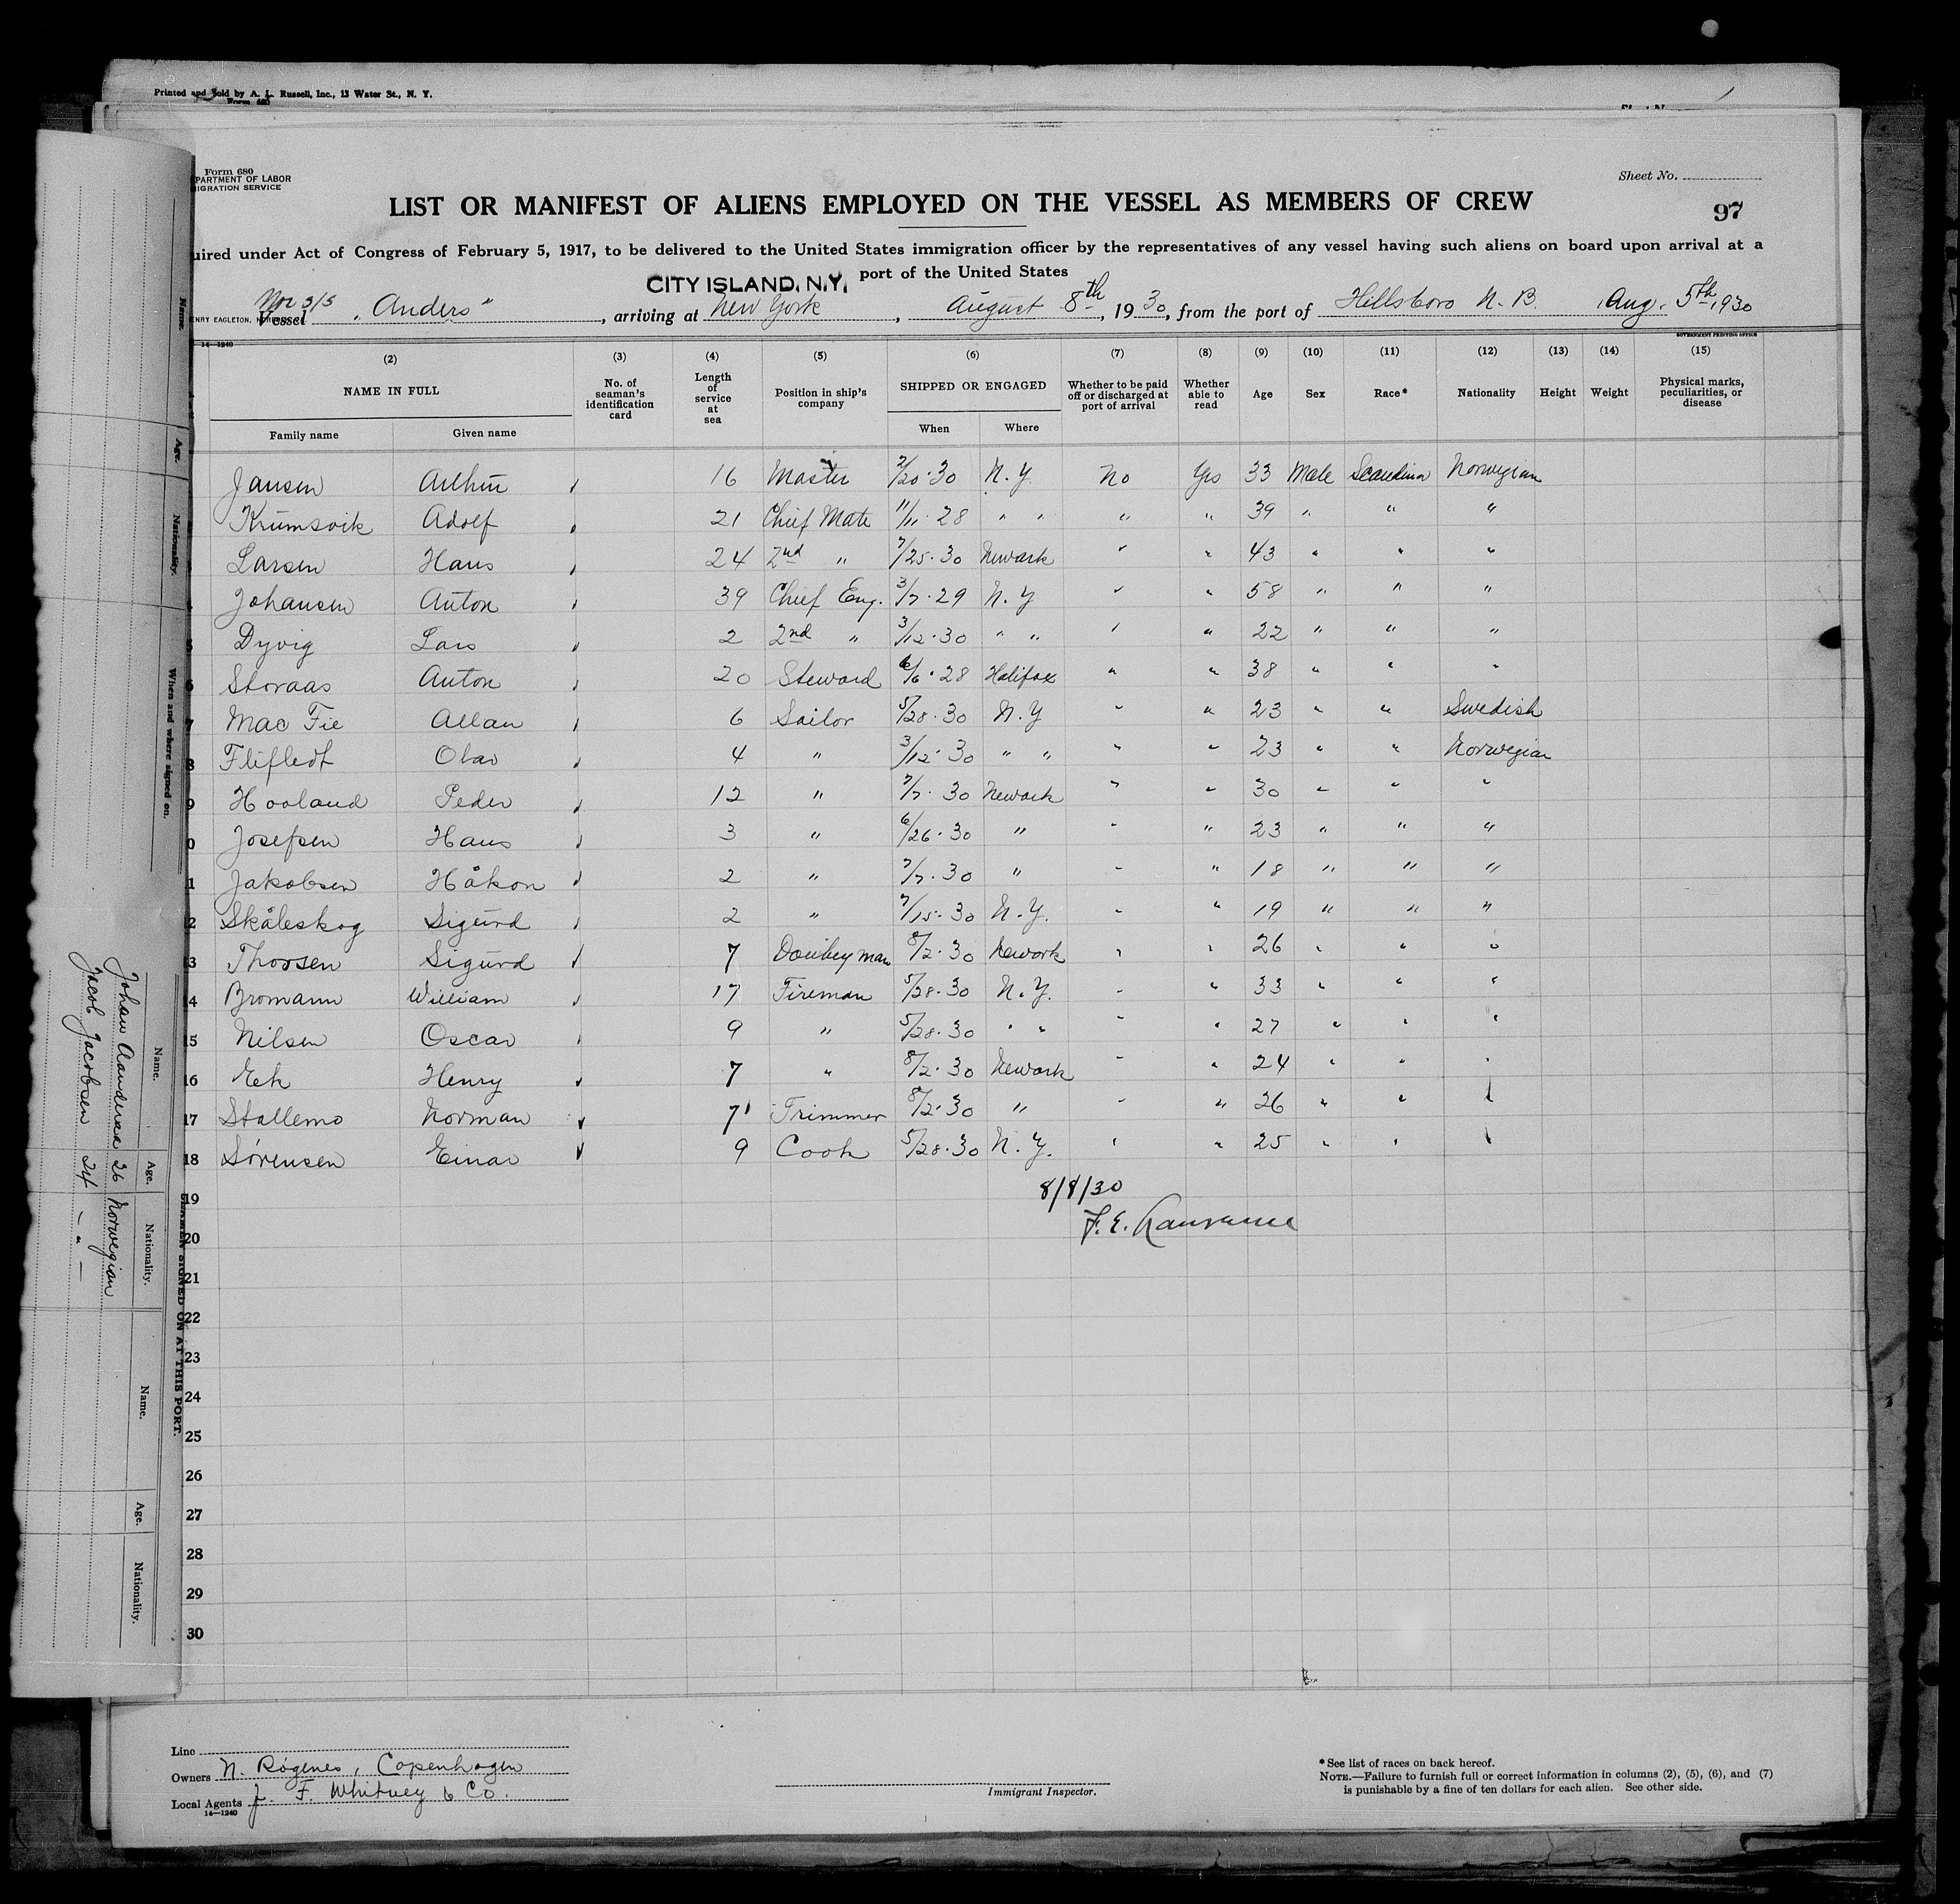 Printed and Sold by A. L. Russell, Inc., 13 Water St., N. Y.
Form 680
Form 680
PARTMENT OF LABOR
IGRATION SERVICE
Sheet No.
LIST OR MANIFEST OF ALIENS EMPLOYED ON THE VESSEL AS MEMBERS OF CREW
97
uired under Act of Congress of February 5, 1917, to be delivered to the United States immigration officer by the representatives of any vessel having such aliens on board upon arrival at a
port of the United States
CITY ISLAND, N.Y.
Nor S/S
Vessel "Anders", arriving at New York, August 8th, 1930, from the port of Hillsboro N. B. Aug. 5th, 1930
14—1240
GOVERNMENT PRINTING OFFICE
(2) (3) (4) (5) (6) (7) (8) (9) (10) (11) (12) (13) (14) (15)
NAME IN FULL No. of seaman's identification card Length of service at sea Position in ship's company SHIPPED OR ENGAGED Whether to be paid off or discharged at port of arrival Whether able to read Age Sex Race* Nationality Height Weight Physical marks, peculiarities, or disease
Family name Given name When Where
Jansen Arthur 16 Master 2/20·30 N.Y. No Yes 33 Male Scandina Norwegian
Krumsvik Adolf 21 Chief Mate 11/11·28 " " " " 39 " " "
Larsen Hans 24 2nd " 7/25·30 Newark " " 43 " " "
4 Johansen Anton 39 Chief Eng. 3/7·29 N.Y " " 58 " " "
5 Dyvig Lars 2 2nd " 3/12·30 " " " " 22 " " "
6 Storaas Anton 20 Steward 6/6·28 Halifax " " 38 " " "
7 Mac Fie Allan 6 Sailor 5/28·30 N.Y " " 23 " " Swedish
8 Flifledt Olav 4 " 3/12·30 " " " " 23 " " Norwegian
9 Hovland Peder 12 " 7/7·30 Newark " " 30 " " "
0 Josefsen Hans 3 " 6/26·30 " " " 23 " " "
1 Jakobsen Håkon 2 " 7/7·30 " " " 18 " " "
2 Skåleskog Sigurd 2 " 7/15·30 N.Y. " " 19 " " "
3 Thorsen Sigurd 7 Donkeyman 8/2·30 Newark " " 26 " " "
4 Bromann William 17 Fireman 5/28·30 N.Y. " " 33 " " "
15 Nilsen Oscar 9 " 5/28·30 " " " " 27 " " "
16 Eek Henry 7 " 8/2·30 Newark " " 24 " " "
17 Stallemo Norman 7 Trimmer 8/2·30 " " " 26 " " "
18 Sörensen Einar 9 Cook 5/28·30 N.Y. " " 25 " " "
19 8/8/30
20 F. E. Lawrence
21
22
23
24
25
26
27
28
29
30
Line
Owners N. Røgenes, Copenhagen
Local Agents J. F. Whitney & Co.
14—1240
Immigrant Inspector.
* See list of races on back hereof.
NOTE.—Failure to furnish full or correct information in columns (2), (5), (6), and (7)
is punishable by a fine of ten dollars for each alien. See other side.
Name. Age. Nationality. When and where signed on.
SIGNED ON AT THIS PORT.
Name. Age. Nationality. Name. Age. Nationality.
Johan 26 Norwegian
Jacob Jacobsen 24 - " -